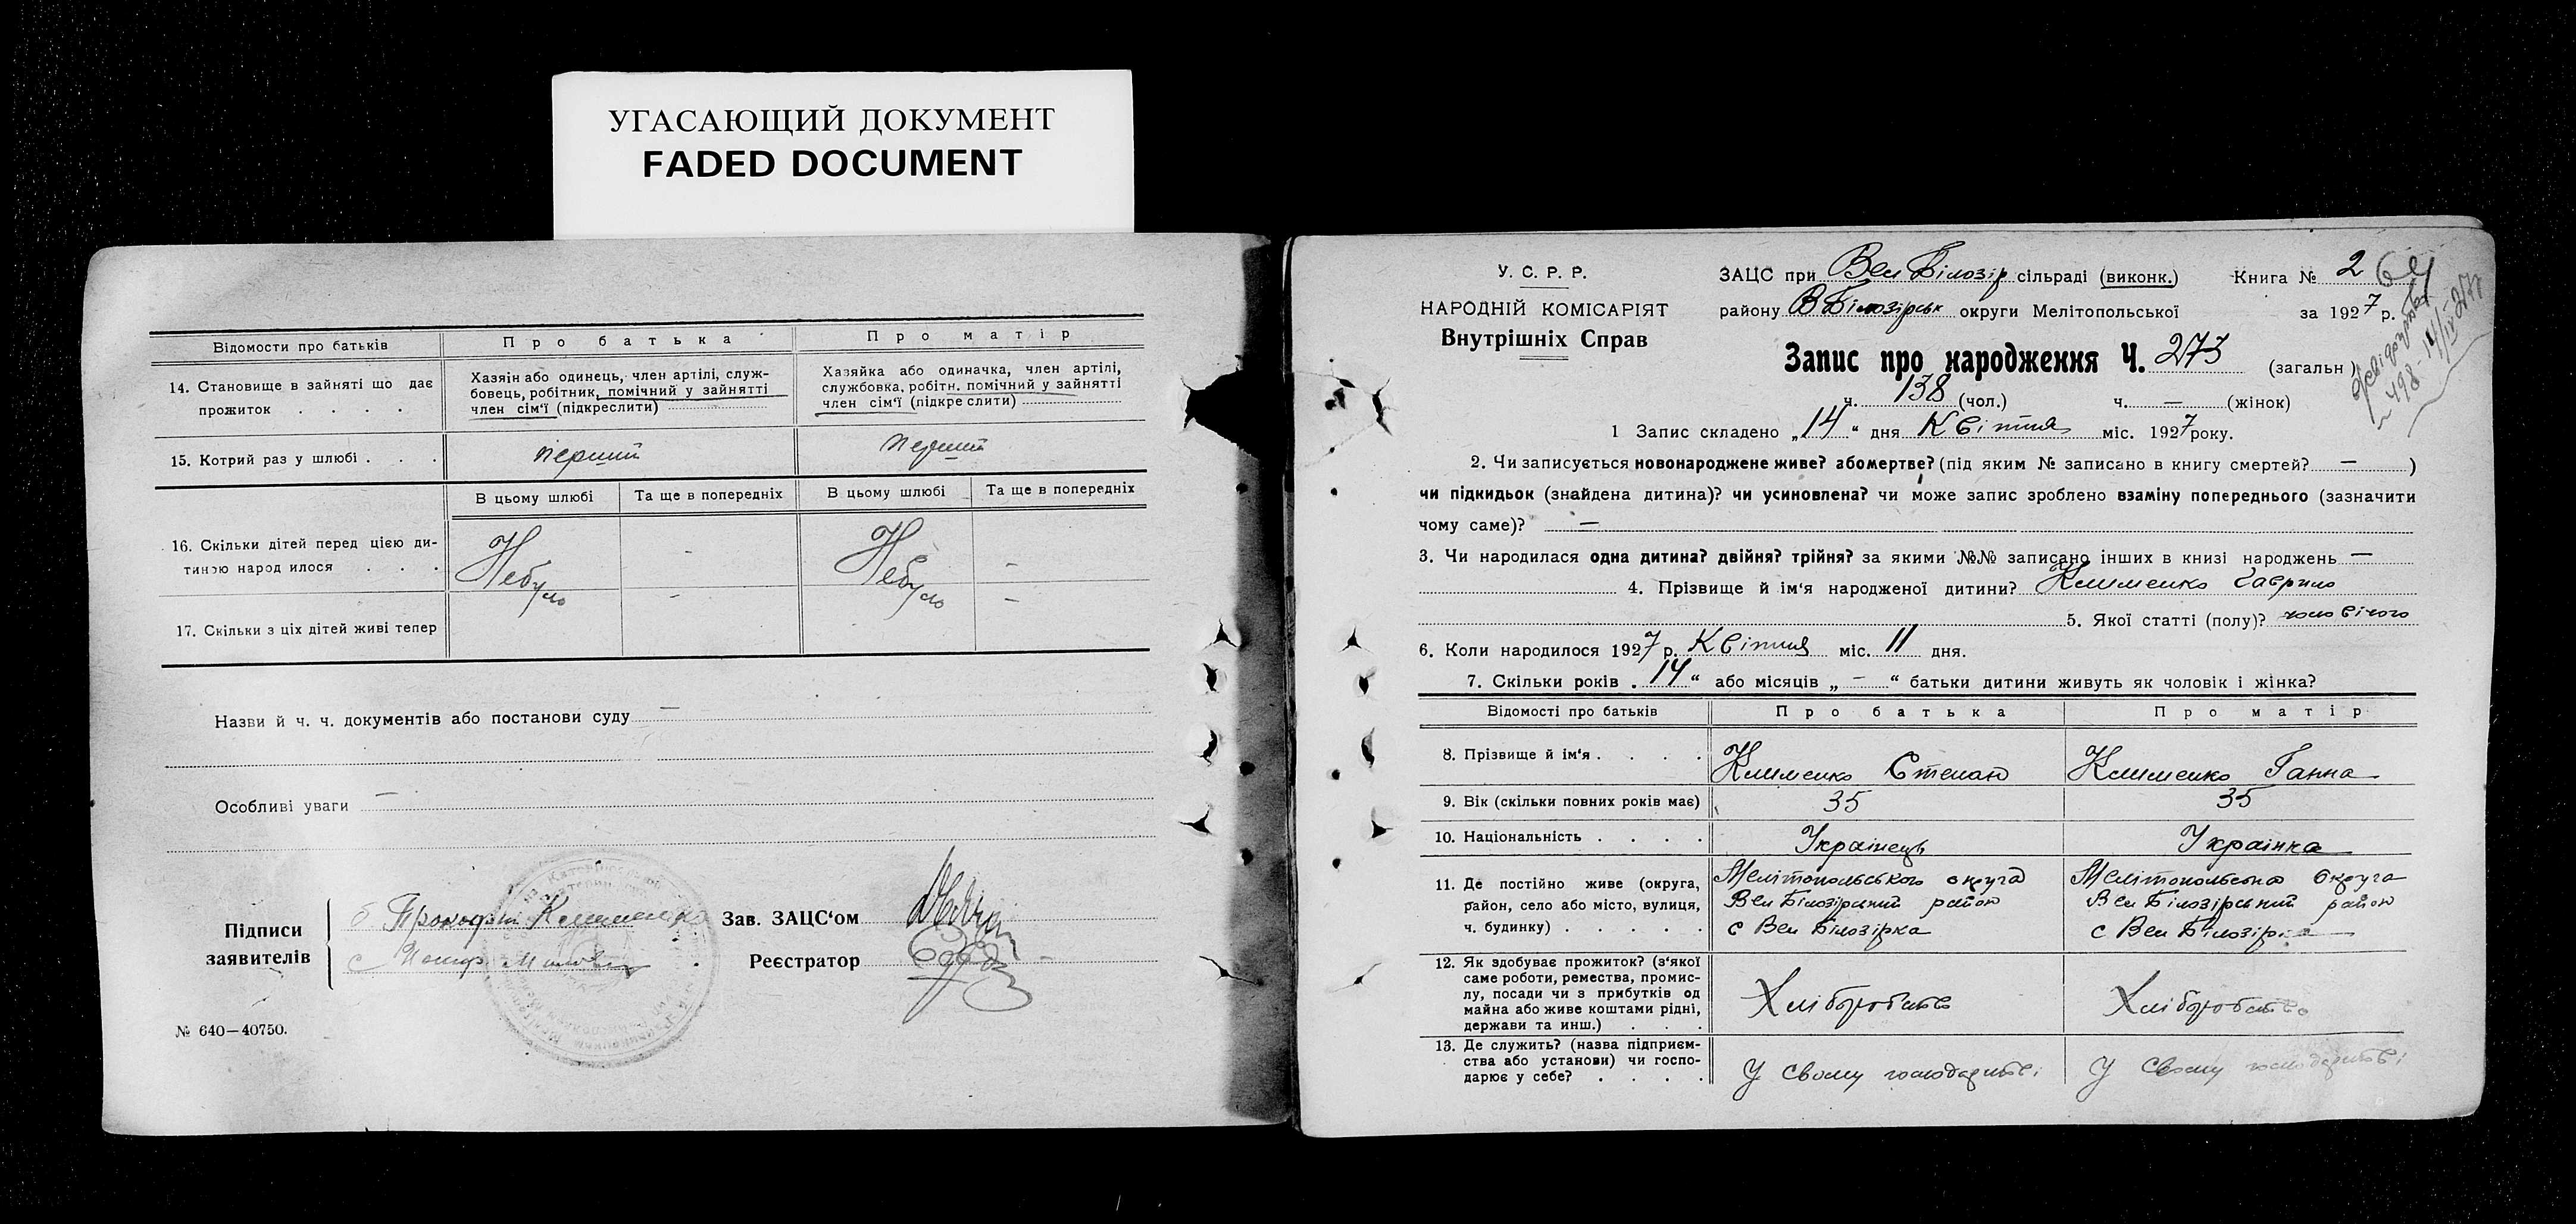 УГАСАЮЩИЙ ДОКУМЕНТ
FADED DOCUMENT
Відомости про батьків
Про батька
Про матір
14. Становище в зайняті що дає прожиток . . . .
Хазяїн або одинець, член артілі, служ-
бовець, робітник, помічний у зайнятті
член сім'ї (підкреслити)
Хазяйка або одиначка, член артілі,
службовка, робітн. помічний у зайнятті
член сім'ї (підкреслити)
15. Котрий раз у шлюбі . . .
перший
перший
В цьому шлюбі
Та ще в попередніх
В цьому шлюбі
Та ще в попередніх
16. Скільки дітей перед цією ди-
тиною народ илося . . .
Небуло
-
Небуло
-
17. Скільки з ціх дітей живі тепер
-
-
Назви й ч. ч. документів або постанови суду —
Особливі уваги —
Підписи
заявителів
Прокофий Клименко
Зав. ЗАЦС'ом
Реєстратор
№ 640—40750.
У. С. Р. Р.
НАРОДНІЙ КОМІСАРІЯТ
Внутрішніх Справ
ЗАЦС при Вел Білозір сільраді (виконк.)
Книга № 2
64
району ВБілозірськ округи Мелітопольської
за 1927 р.
Запис про народження Ч. 273 (загальн)
ч. 138 (чол.) ч. — (жінок)
1 Запис складено „14“ дня Квітня міс. 1927 року.
2. Чи записується новонароджене живе? або мертве? (під яким № записано в книгу смертей? — )
чи підкидьок (знайдена дитина)? чи усиновлена? чи може запис зроблено взаміну попереднього (зазначити
чому саме)? —
3. Чи народилася одна дитина? двійня? трійня? за якими №№ записано інших в книзі народжень —
4. Прізвище й ім'я народженої дитини? Клименко Гаврило
5. Якої статті (полу)? чоловічого
6. Коли народилося 1927 р. Квітня міс. 11 дня.
7. Скільки років „14“ або місяців „—“ батьки дитини живуть як чоловік і жінка?
Відомості про батьків
Про батька
Про матір
8. Прізвище й ім'я . . . .
Клименко Степан
Клименко Ганна
9. Вік (скільки повних років має)
35
35
10. Національність . . . .
Украінець
Украінка
11. Де постійно живе (округа,
район, село або місто, вулиця,
ч. будинку) . . . . .
Мелітопольського округа
Вел Білозірський район
с Вел Білозірка
Мелітопольсько округа
Вел Білозірський район
с Вел Білозірка
12. Як здобуває прожиток? (з'якої
саме роботи, ремества, промис-
лу, посади чи з прибутків од
майна або живе коштами рідні,
держави та инш.) . . .
Хліборобство
Хліборобство
13. Де служить? (назва підприєм-
ства або установи) чи госпо-
дарює у себе? . . . .
У свому господарстві
У свому господарстві